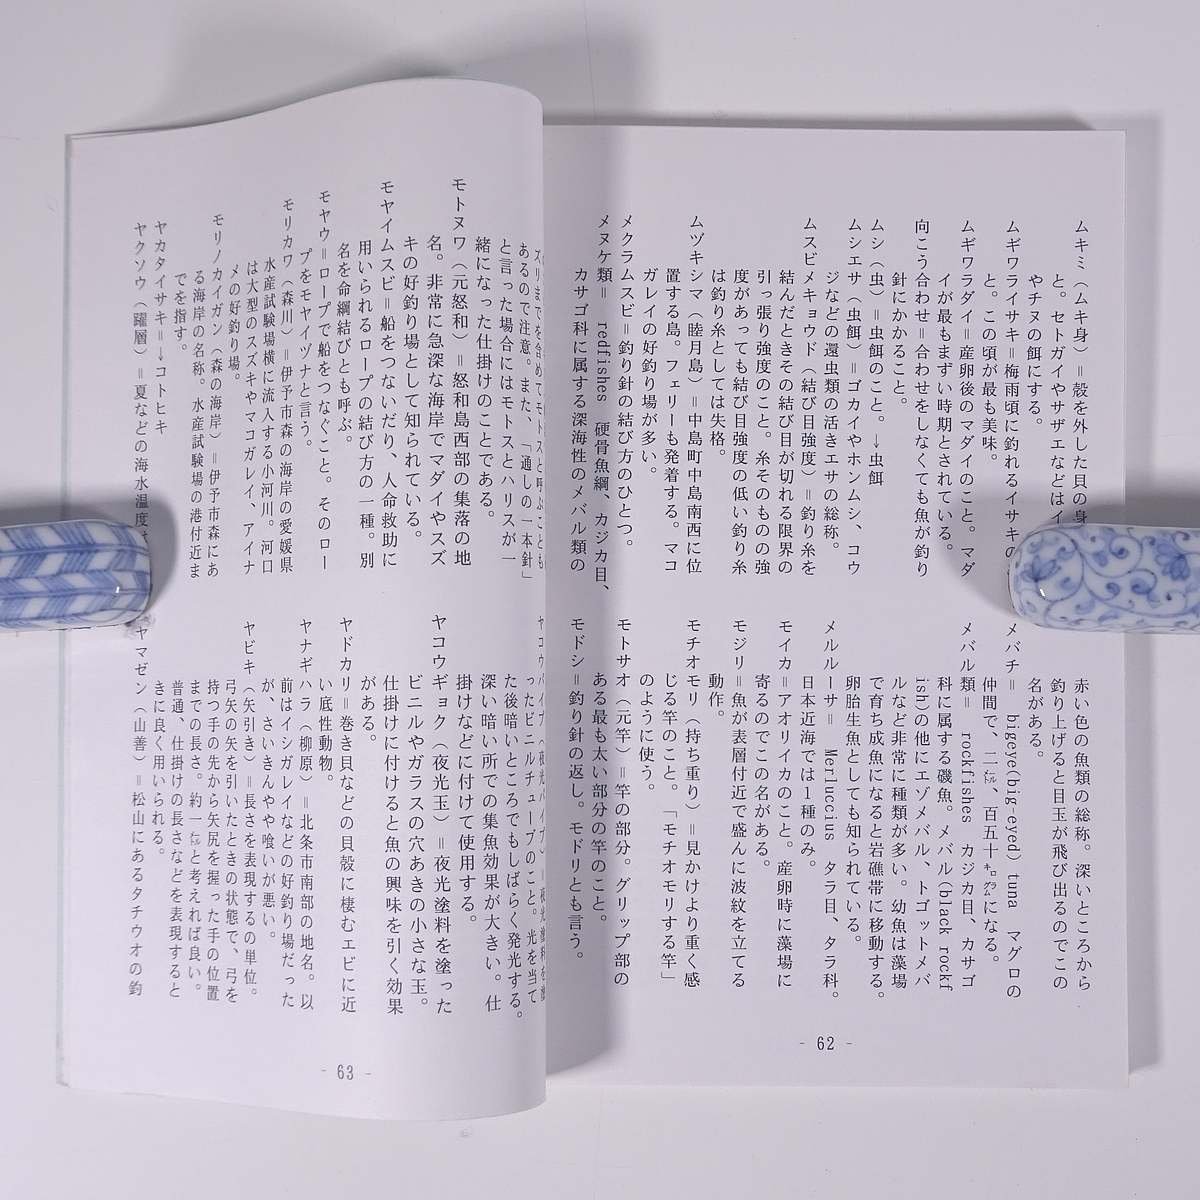 ムキミ（ムキ身）＝殻を外した貝の身
と。セトガイやサザエなどはイ
やチヌの餌にする。
ムギワライサキ＝梅雨頃に釣れるイサキの
と。この頃が最も美味。
ムギワラダイ＝産卵後のマダイのこと。マダ
イが最もまずい時期とされている。
向こう合わせ＝合わせをしなくても魚が釣り
針にかかること。
ムシ（虫）＝虫餌のこと。→虫餌
ムシエサ（虫餌）＝ゴカイやホンムシ、コウ
ジなどの還虫類の活きエサの総称。
ムスビメキョウド（結び目強度）＝釣り糸を
結んだときその結び目が切れる限界の
引っ張り強度のこと。糸そのものの強
度があっても結び目強度の低い釣り糸
は釣り糸としては失格。
ムヅキシマ（睦月島）＝中島町中島南西に位
置する島。フェリーも発着する。マコ
ガレイの好釣り場が多い。
メクラムスビ＝釣り針の結び方のひとつ。
メヌケ類＝ redfishes 硬骨魚綱、カジカ目、
カサゴ科に属する深海性のメバル類の
赤い色の魚類の総称。深いところから
釣り上げると目玉が飛び出るのでこの
名がある。
メバチ＝ bigeye(big-eyed) tuna マグロの
仲間で、二㍍、百五十㌔㌘になる。
メバル類＝ rockfishes カジカ目、カサゴ
科に属する磯魚。メバル(black rockf
ish)の他にエゾメバル、トゴットメバ
ルなど非常に種類が多い。幼魚は藻場
で育ち成魚になると岩礁帯に移動する。
卵胎生魚としても知られている。
メルルーサ＝ Merluccius タラ目、タラ科。
日本近海では1種のみ。
モイカ＝アオリイカのこと。産卵時に藻場に
寄るのでこの名がある。
モジリ＝魚が表層付近で盛んに波紋を立てる
動作。
モチオモリ（持ち重り）＝見かけより重く感
じる竿のこと。「モチオモリする竿」
のように使う。
モトサオ（元竿）＝竿の部分。グリップ部の
ある最も太い部分の竿のこと。
モドシ＝釣り針の返し。モドリとも言う。
- 62 -
ズリまでを含めてモトスと呼ぶことも
あるので注意。また、「通しの一本針」
と言った場合にはモトスとハリスが一
緒になった仕掛けのことである。
モトヌワ（元怒和）＝怒和島西部の集落の地
名。非常に急深な海岸でマダイやスズ
キの好釣り場として知られている。
モヤイムスビ＝船をつないだり、人命救助に
用いられるロープの結び方の一種。別
名を命綱結びとも呼ぶ。
モヤウ＝ロープで船をつなぐこと。そのロー
プをモヤイヅナと言う。
モリカワ（森川）＝伊予市森の海岸の愛媛県
水産試験場横に流入する小河川。河口
は大型のスズキやマコガレイ、アイナ
メの好釣り場。
モリノカイガン（森の海岸）＝伊予市森にあ
る海岸の名称。水産試験場の港付近ま
でを指す。
ヤカタイサキ＝→コトヒキ
ヤクソウ（躍層）＝夏などの海水温度
ヤコウパイプ（夜光パイプ）＝夜光塗料を塗
ったビニルチューブのこと。光を当て
た後暗いところでもしばらく発光する。
深い暗い所での集魚効果が大きい。仕
掛けなどに付けて使用する。
ヤコウギョク（夜光玉）＝夜光塗料を塗った
ビニルやガラスの穴あきの小さな玉。
仕掛けに付けると魚の興味を引く効果
がある。
ヤドカリ＝巻き貝などの貝殻に棲むエビに近
い底性動物。
ヤナギハラ（柳原）＝北条市南部の地名。以
前はイシガレイなどの好釣り場だった
が、さいきんやや喰いが悪い。
ヤビキ（矢引き）＝長さを表現するの単位。
弓矢の矢を引いたときの状態で、弓を
持つ手の先から矢尻を握った手の位置
までの長さ。約一㍍と考えれば良い。
普通、仕掛けの長さなどを表現すると
きに良く用いられる。
ヤマゼン（山善）＝松山にあるタチウオの釣
- 63 -